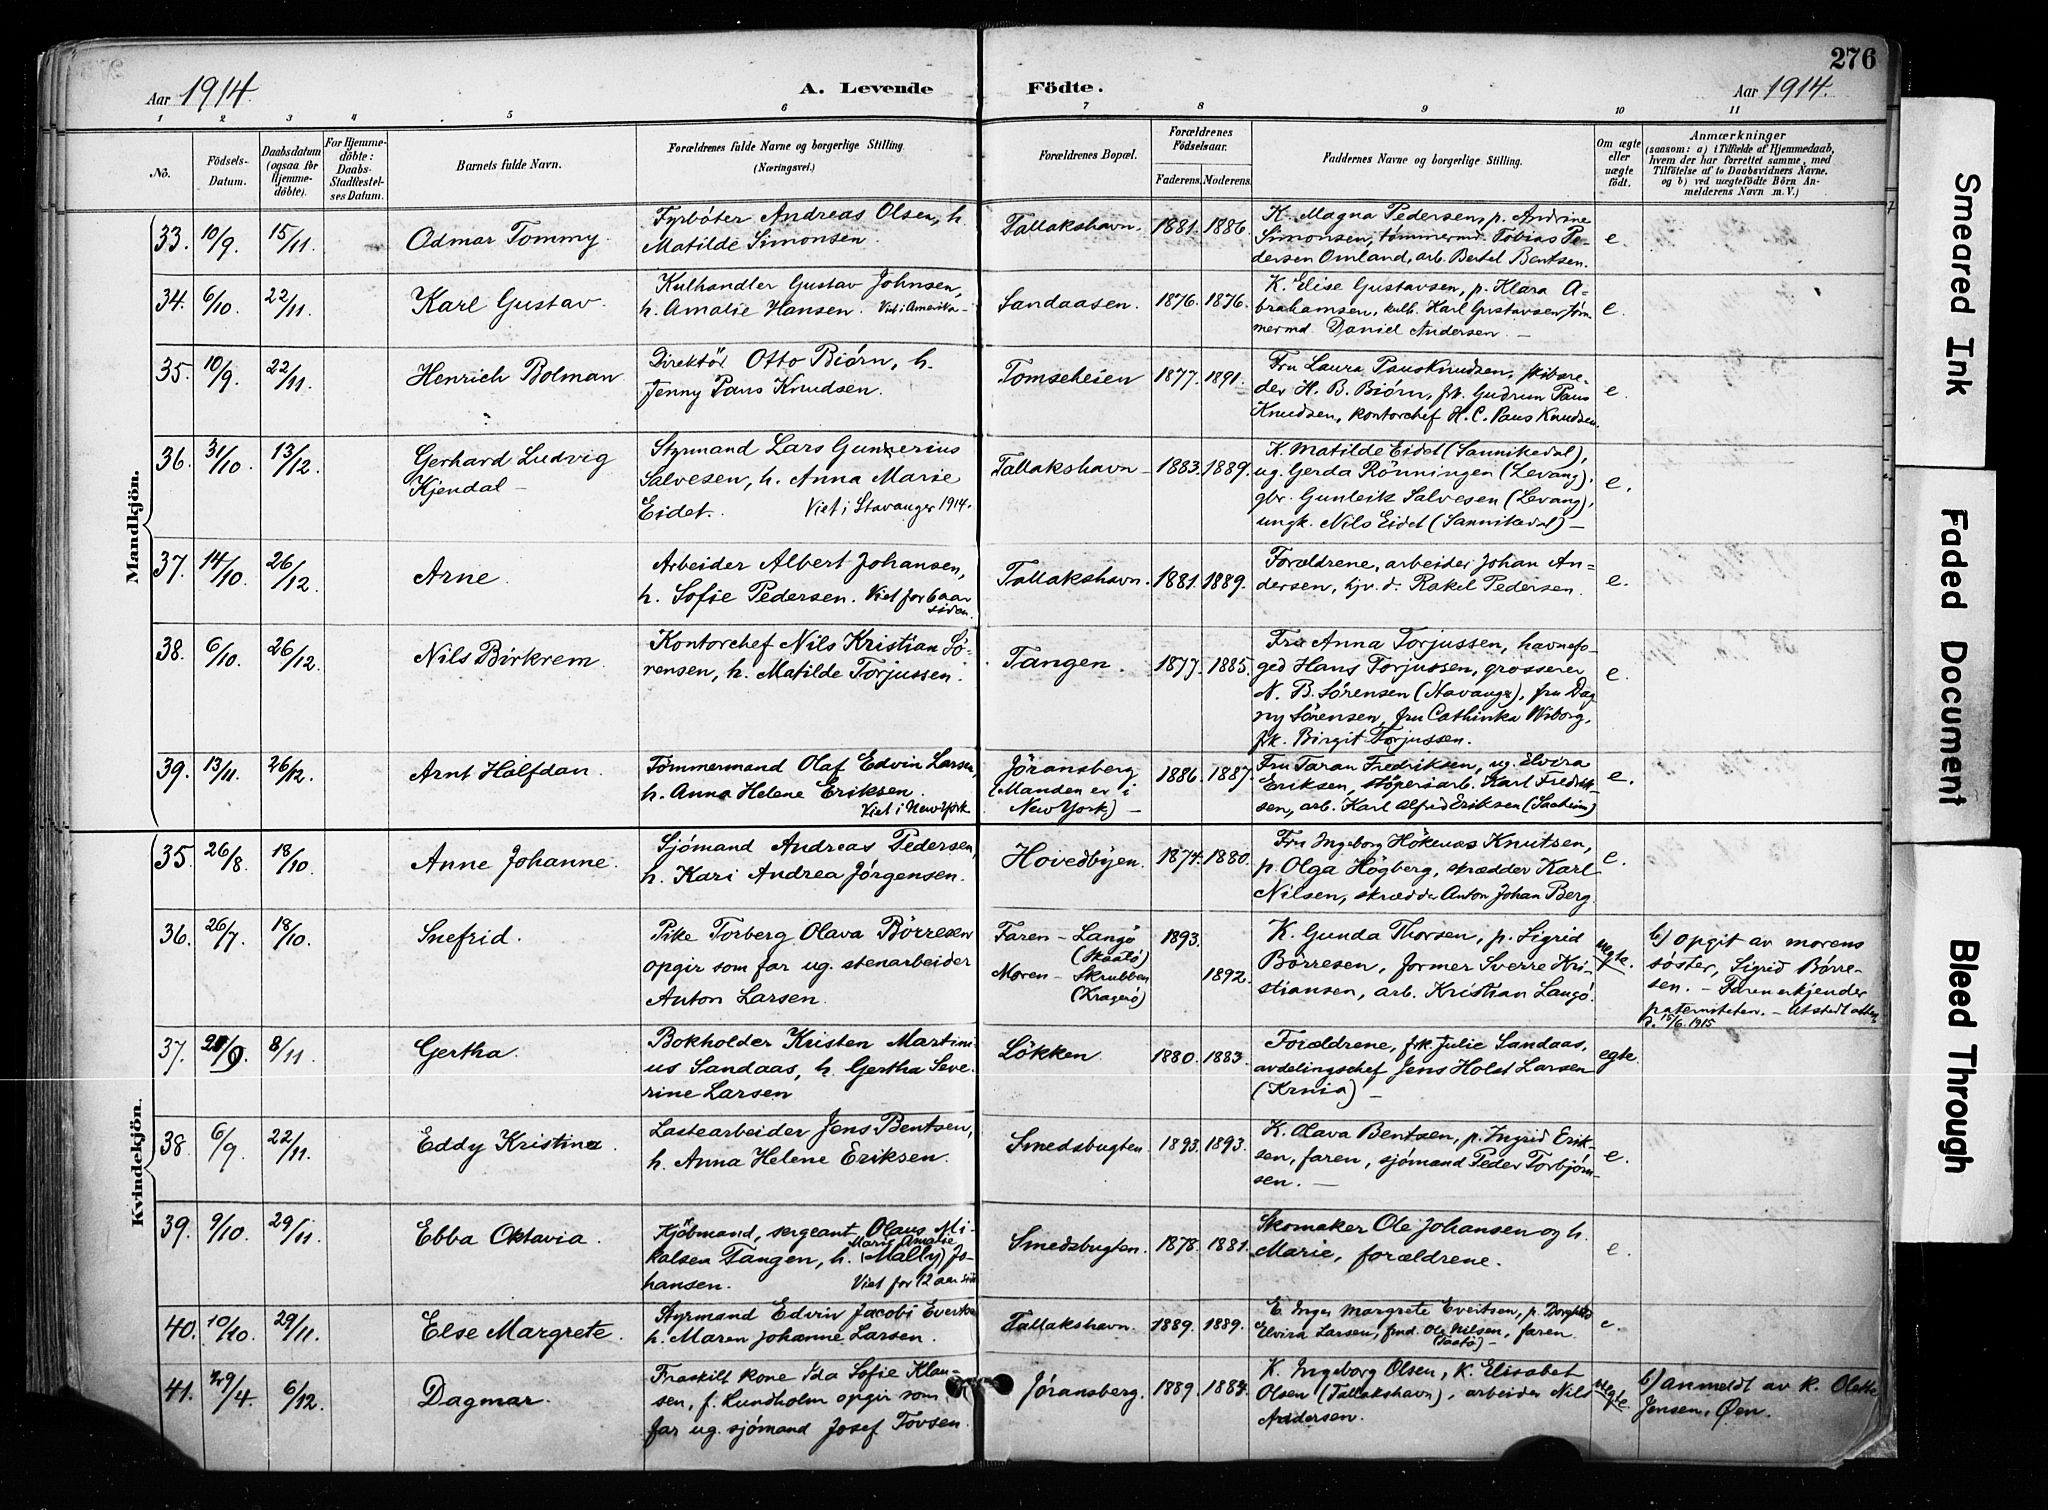 276
Aar 1914.
A. Levende Födte.
Aar 1914.
1 2 3 4 5 6 7 8 9 10 11
No.
Födsels-
Datum.
Daabsdatum
(ogsaa for
Hjemme-
döbte).
For Hjemme-
döbte:
Daabs-
Stadfæstel-
ses Datum.
Barnets fulde Navn.
Forældrenes fulde Navne og borgerlige Stilling
(Næringsvei.)
Forældrenes Bopæl.
Forældrenes
Födselsaar.
Faderens. Moderens.
Faddernes Navne og borgerlige Stilling.
Om ægte
eller
uægte
födt.
Anmærkninger
(saasom: a) i Tilfælde af Hjemmedaab,
hvem der har forrettet samme, med
Tilföielse af to Daabsvidners Navne,
og b) ved uægtefödte Börn An-
melderens Navn m. V.)
Mandkjön.
33. 10/9. 15/11. Odmar Tommy.
Fyrböter Andreas Olsen, h.
Matilde Simonsen.
Tallakshavn. 1881. 1886.
K. Magna Pedersen, p. Andrine
Simonsen, tømmermd. Tobias Pe-
dersen Omland, arb. Bertel Bentsen.
e.
34. 6/10. 22/11. Karl Gustav.
Kulhandler Gustav Johnsen,
h. Amalie Hansen. Viet i Amerika-
Sandaasen. 1876. 1876.
K. Elise Gustavsen, p. Klara A-
brahamsen, kulh. Karl Gustavsen, töm
mermd. Daniel Andersen. -
e.
35. 10/9. 22/11. Henrich Bolman
Direktör Otto Biörn, h.
Jenny Paus Knudsen.
Tomseheien 1877. 1891.
Fru Laura Paus Knudsen, skibsre-
der H. B. Biörn, frk. Gudrun Paus
Knudsen, kontorchef H. C. Paus Knudsen.
e.
36. 31/10. 13/12. Gerhard Ludvig
Kjendal -
Styrmand Lars Gunnerius
Salvesen, h. Anna Marie
Eidet. Viet i Stavanger 1914.
Tallakshavn - 1883. 1889.
K. Matilde Eidet (Sannikedal),
ug. Gerda Rönningen (Levang),
gbr. Gunleik Salvesen (Levang),
ungk. Nils Eidet (Sannikedal) -
e.
37. 14/10. 26/12. Arne.
Arbeider Albert Johansen,
h. Sofie Pedersen. Viet for 6 aar
siden.
Tallakshavn. 1881. 1889.
Forældrene, arbeider Johan An-
dersen, hjv. d. Rakel Pedersen.
e.
38. 6/10. 26/12. Nils Birkrem.
Kontorchef Nils Kristian Sö-
rensen, h. Matilde Torjussen.
Tangen. 1877. 1885.
Fru Anna Torjussen, havnefo-
ged Hans Torjussen, grosserer
N. B. Sörensen (Stavanger), fru Dag
ny Sörensen, fru Cathinka Wiborg,
frk. Birgit Torjussen.
e.
39. 13/11. 26/12. Arnt Halfdan.
Tömmermand Olaf Edvin Larsen,
h. Anna Helene Eriksen.
Viet i New York
Jöransberg
(Manden er i
New York) -
1886. 1887.
Fru Taran Fredriksen, ug. Elvira
Eriksen, støperiarb. Karl Fredrik-
sen, arb. Karl Alfred Eriksen (Saaheim)
e.
Kvindekjön.
35. 26/8. 18/10. Anne Johanne.
Sjömand Andreas Pedersen,
h. Kari Andrea Jörgensen.
Hovedbyen. 1874. 1880.
Fru Ingeborg Hökenæs Knutsen,
p. Olga Högberg, skrædder Karl
Nilsen, skrædder Anton Johan Berg.
e.
36. 26/7. 18/10. Snefrid.
Pike Torberg Olava Börresen
opgir som far ug. stenarbeider
Anton Larsen.
Faren - Langö
(Skaatö)
Moren - Skrubben
(Kragerö)
1893.
1892.
K. Gunda Thorsen, p. Sigrid
Börresen, former Sverre Kri-
stiansen, arb. Kristian Langö.
uegte.
b) Opgit av morens
söster, Sigrid Börre-
sen. - Faren erkjender
paterniteten. - Utstedt attest
d. 15/6. 1915
37. 8/11. Gertha.
Bokholder Kristen Martini-
us Sandaas, h. Gertha Seve-
rine Larsen
Lökken. 1880. 1883.
Forældrene, frk. Julie Sandaas,
avdelingschef Jens Holst Larsen
(Krnia) -
egte.
38 6/9. 22/11. Eddy Kristine.
Lastearbeider Jens Bentsen,
h. Anna Helene Eriksen.
Smedsbugten 1893. 1893.
K. Olava Bentsen, p. Ingrid Erik-
sen, faren, sjömand Peder Torbjörn-
sen. -
e.
39. 9/10. 29/11. Ebba Oktavia.
Kjöbmand, sergeant Olaus Mi-
Marie Amalie
kalsen Tangen, h. (Mally) Jo-
hansen. Viet for 12 aar sid
Smedsbugten. 1878. 1881.
Skomaker Ole Johansen og h.
Marie, forældrene.
e.
40. 10/10. 29/11. Else Margrete.
Styrmand Edvin Jacobi Evertsen
h. Maren Johanne Larsen.
Tallakshavn. 1889. 1889.
E. Inger Margrete Evertsen, p.
Elvira Larsen, fmd. Ole Nilsen, faren.
(Taatö) -
e.
41. 29/4. 6/12. Dagmar.
Fraskilt kone Ida Sofie Klau-
sen, f. Lundholm opgir som
far ug. sjömand Josef Tovsen.
Jöransberg. 1889. 1883.
K. Ingeborg Olsen, K. Elisabet
Olsen (Tallakshavn), arbeider Nils
Andersen.
uegte.
b) anmeldt av k. Olette
Jensen, Øen.
Smeared Ink
Faded Document
Bleed Through